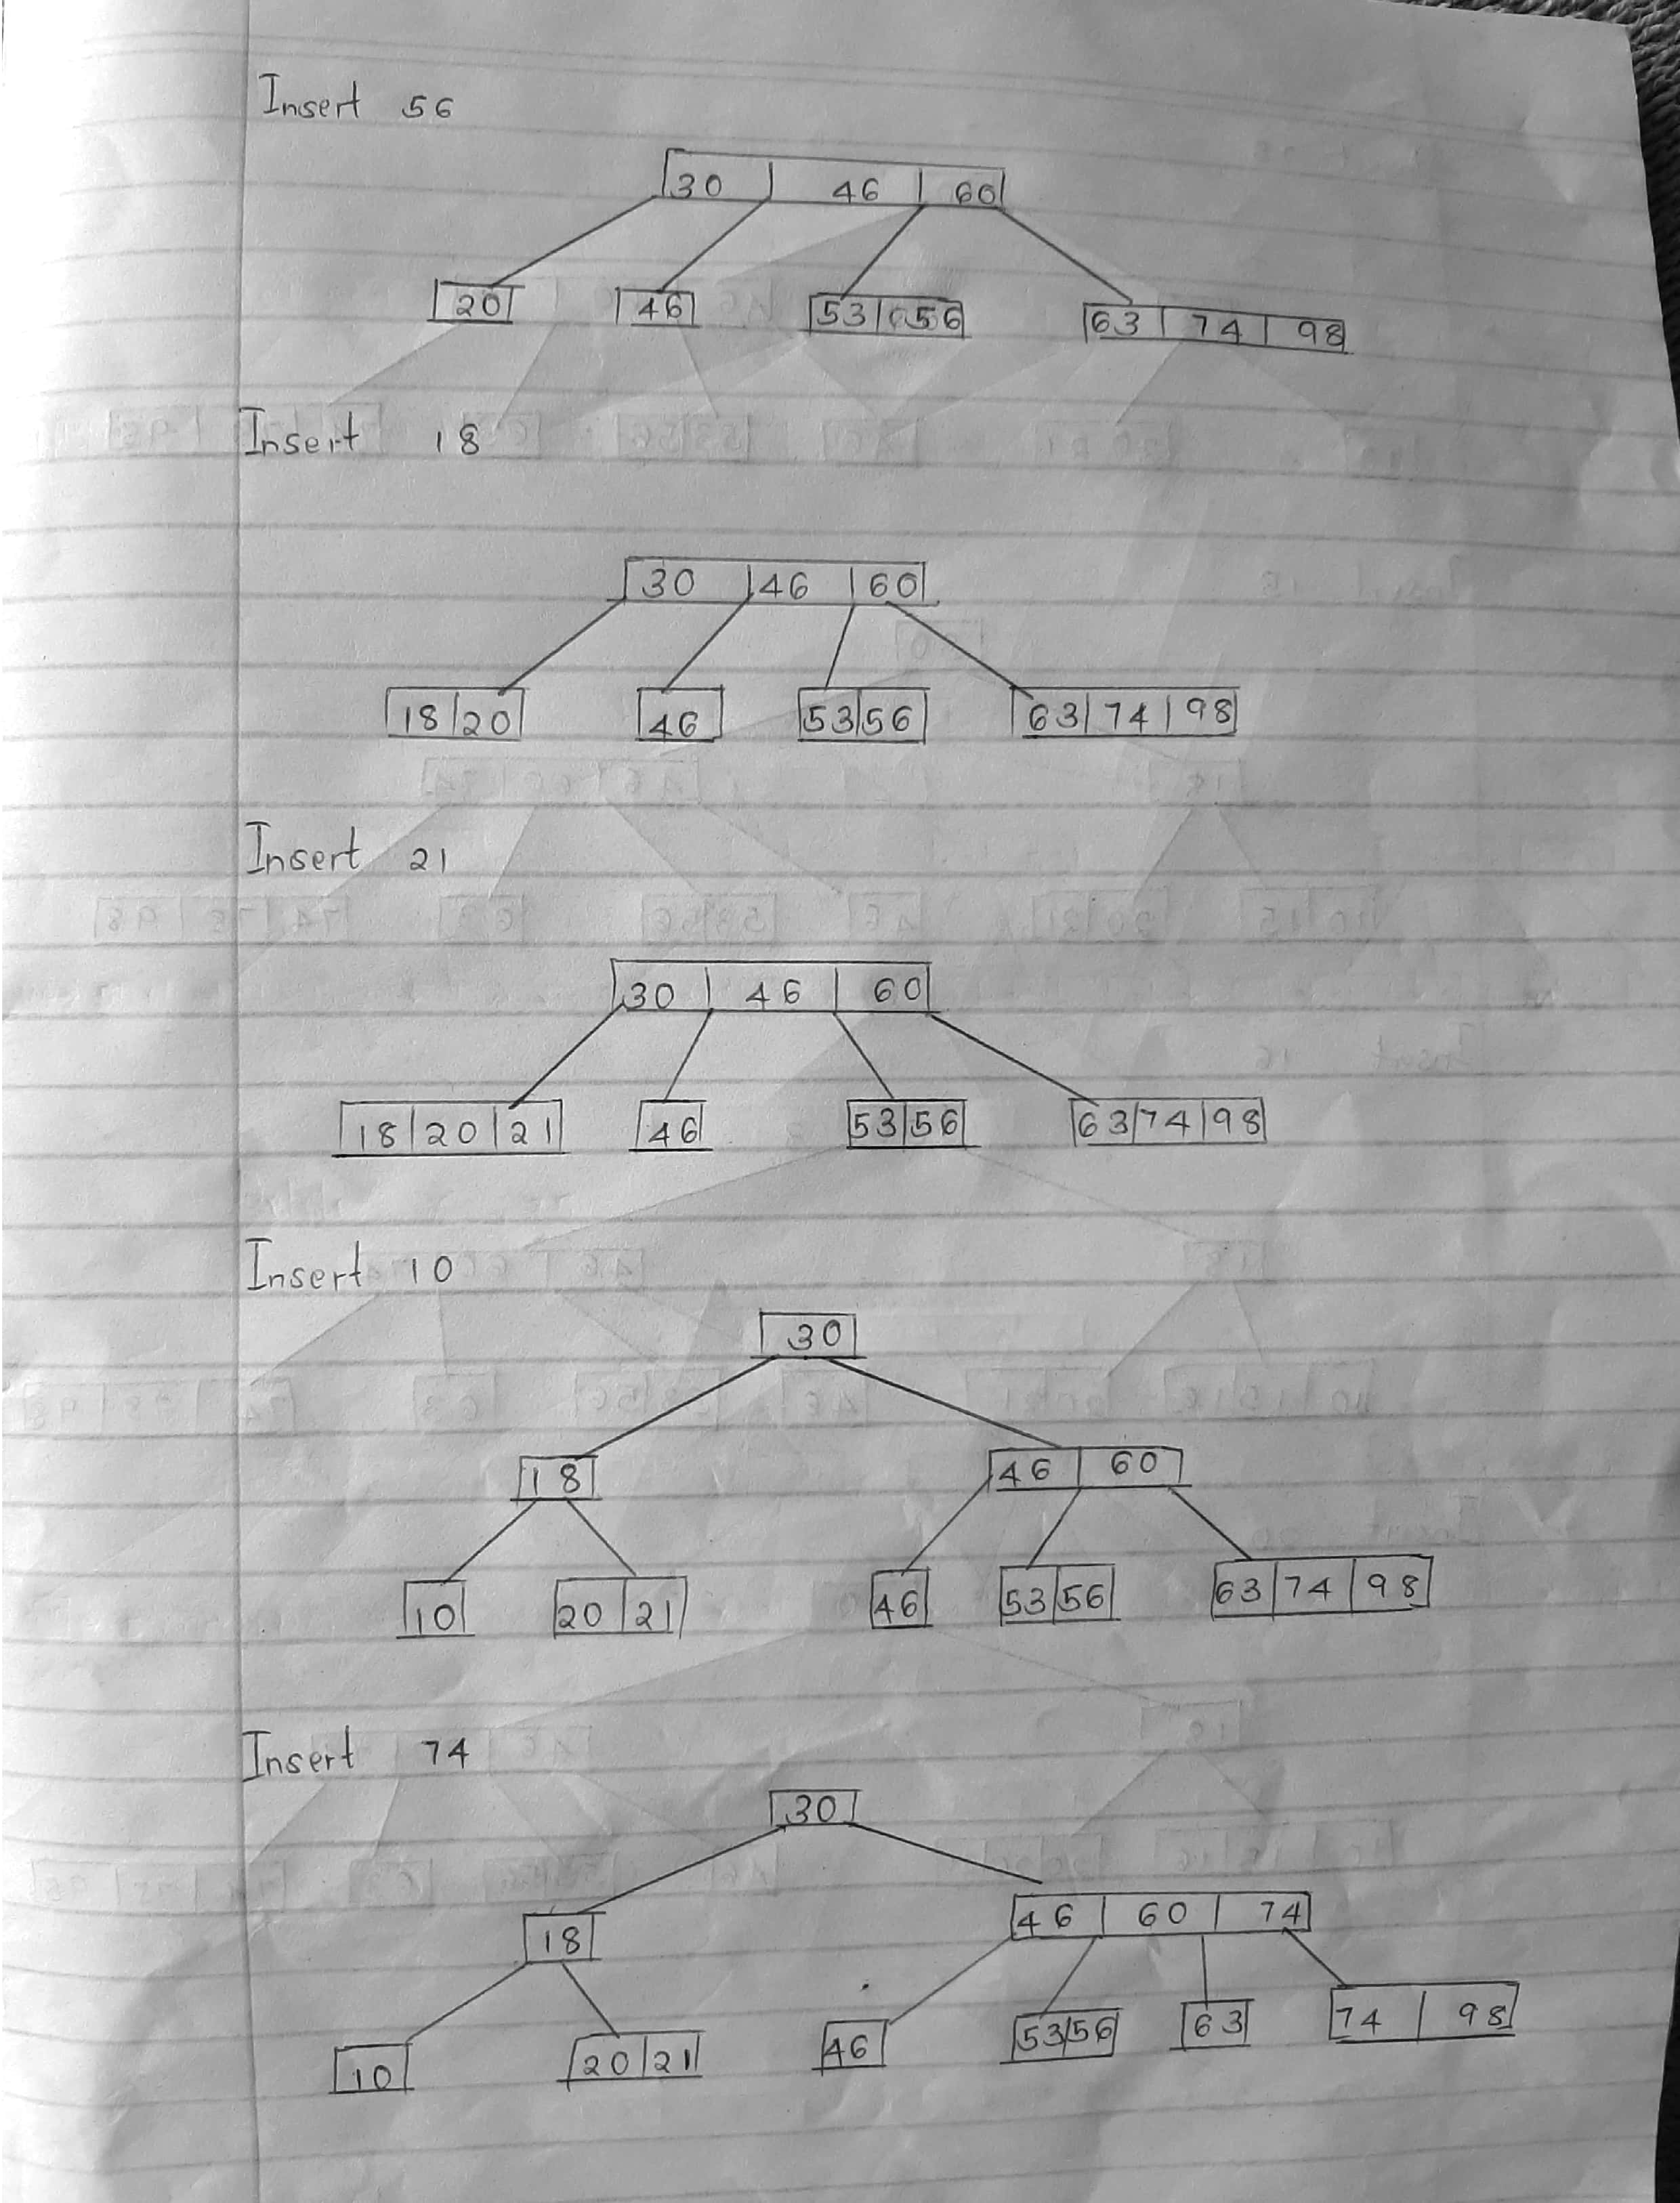 Insert 56
30 46 60
20 46 53 56 63 74 98
Insert 18
30 46 60
18 20 46 53 56 63 74 98
Insert 21
30 46 60
18 20 21 46 53 56 63 74 98
Insert 10
30
18 46 60
10 20 21 46 53 56 63 74 98
Insert 74
30
18 46 60 74
10 20 21 46 53 56 63 74 98